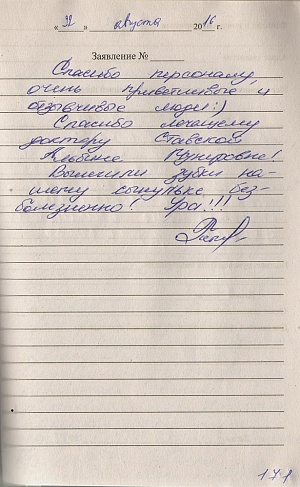 « 22 » августа 2016 г.
Заявление №
Спасибо персоналу,
очень приветливые и
отзывчивые люди:)
Спасибо лечащему
доктору Ставской
Альбине
Вылечили зубки на-
шему сынульке без-
болезненно! Ура!!!
171